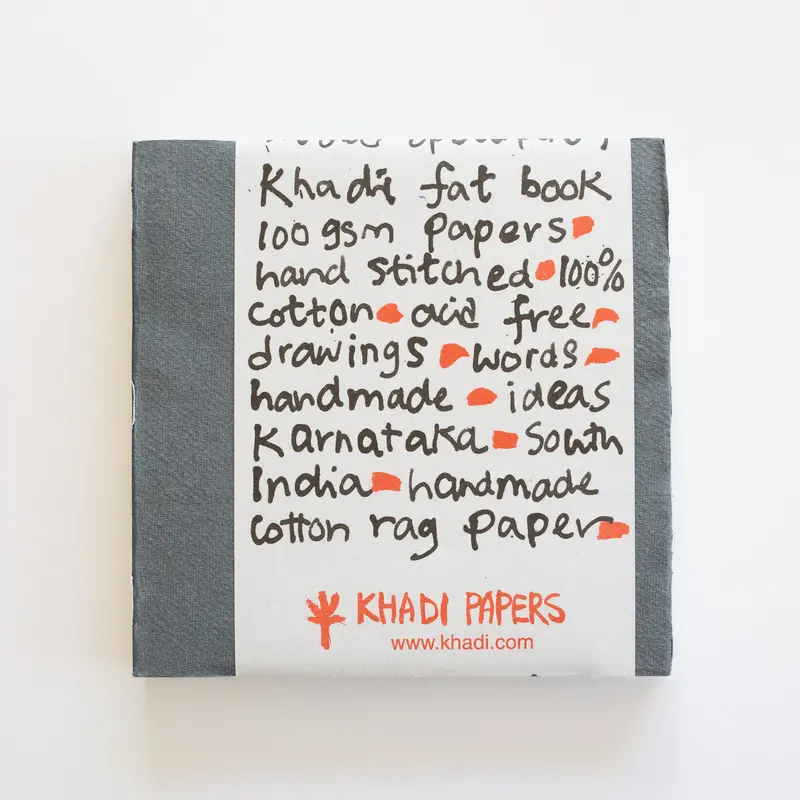 Khadi fat book
100 gsm papers
hand stitched 100%
cotton acid free
drawings words
handmade ideas
Karnataka South
India handmade
cotton rag paper
KHADI PAPERS
www.khadi.com